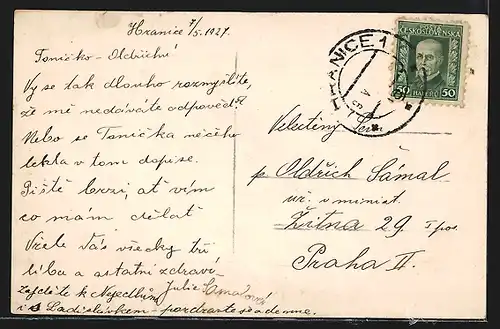 Hranice 7/5. 1927.
Toničko - Oldřichu
Vy se tak dlouho rozmýšlíte,
že mě nedáváte odpověď?
Nebo se Tonička něčeho
lekla v tom dopise.
Pište brzi, ať vím
co mám dělat
Vřele Vás všecky tři
líbá a ostatní zdraví
Julie Smalová
zajděte k Nejedlům
i s Ladislávkem - pozdravte se ode mne.
ČESKOSLOVENSKÁ
50 HALÉŘŮ 50
HRANICE 1
Velectěný Pan
p. Oldřich Šámal
úř. v minist.
Žitná 29. I pos.
Praha II.